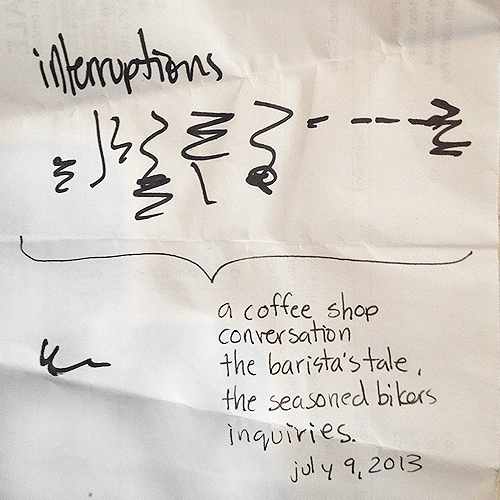 interruptions
a coffee shop
conversation
the barista's tale,
the seasoned bikers
inquiries.
july 9, 2013